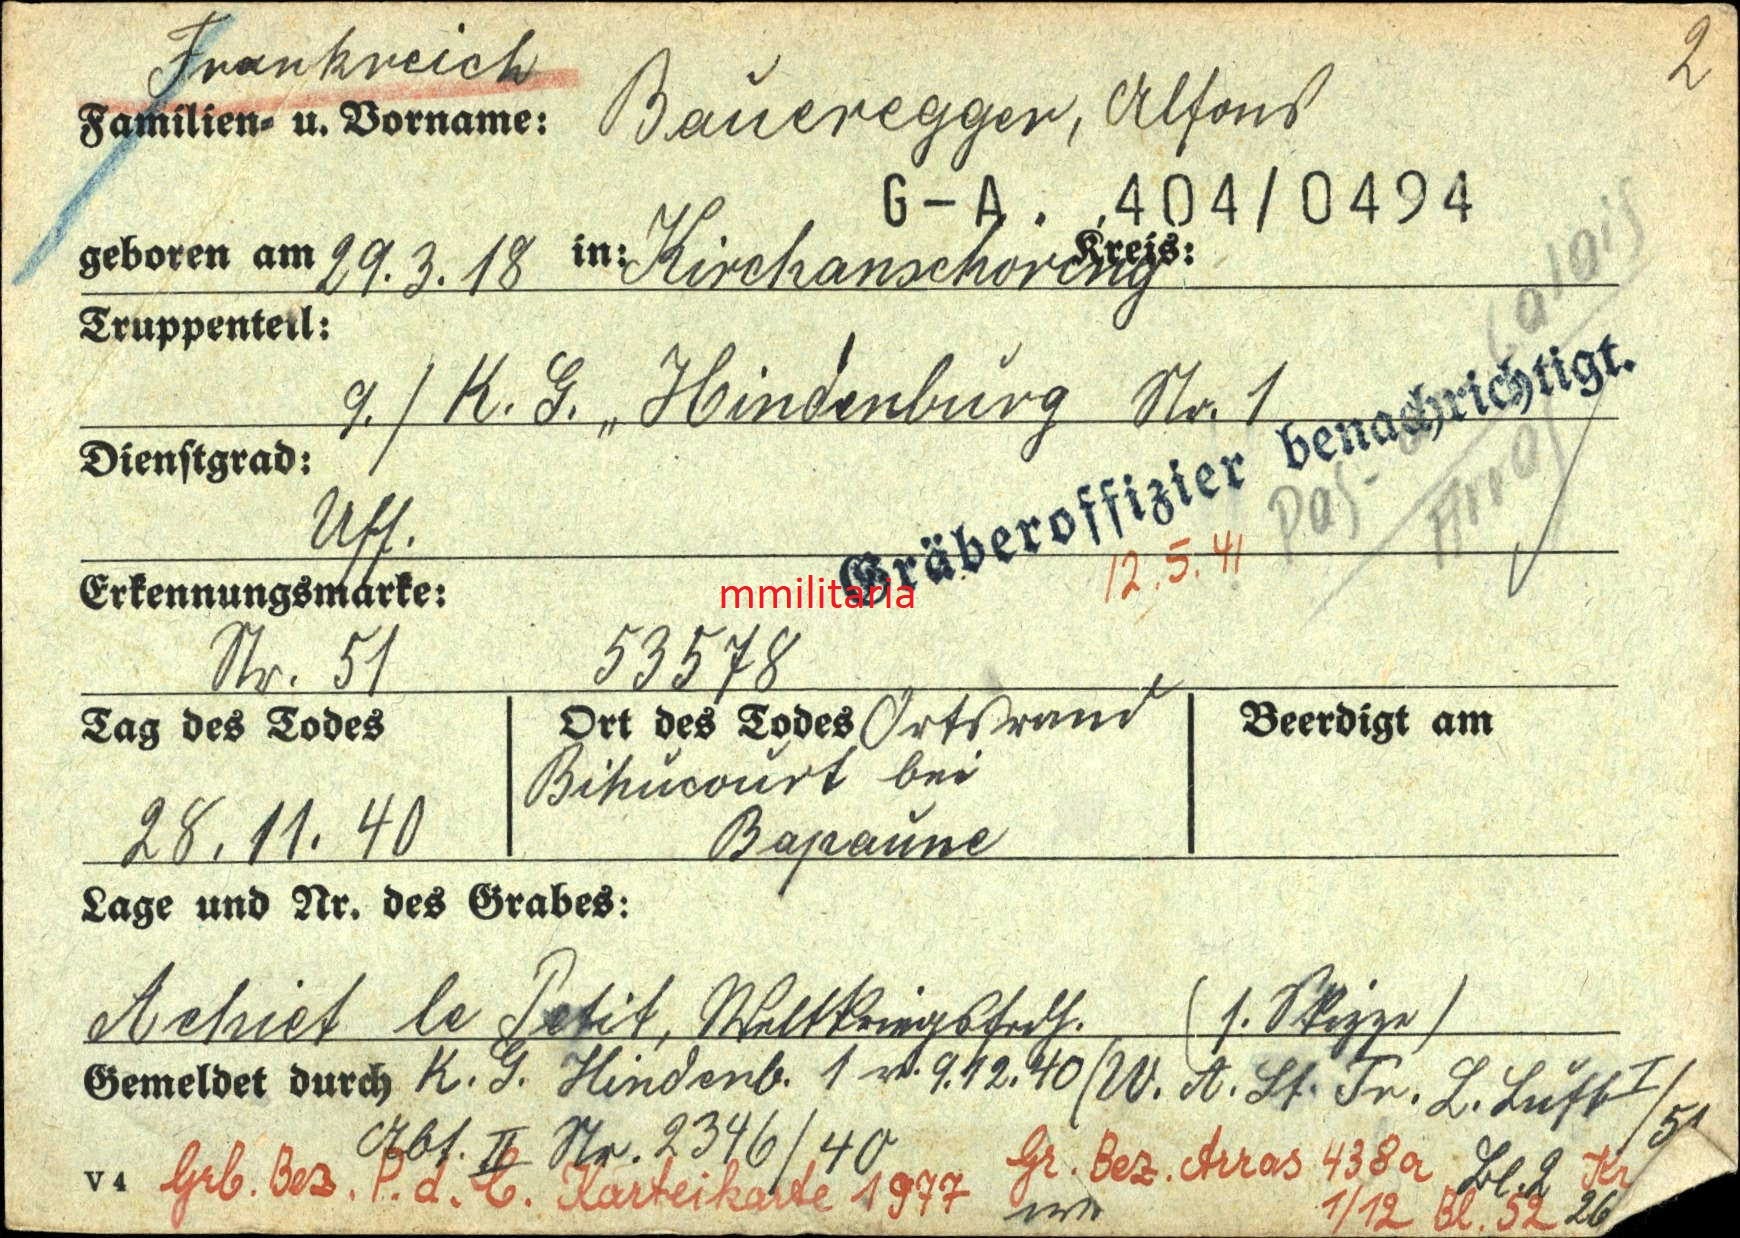 Frankreich
2
Familien- u. Vorname: Baueregger, Alfons
G-A. 404/0494
geboren am 29.3.18 in: Kirchanschöring Kreis:
Truppenteil:
9./ K. G. „Hindenburg Nr. 1
Pas-de Calais
Arras
Gräberoffizier benachrichtigt.
12.5.41
Dienstgrad:
Uff.
Erkennungsmarke:
mmilitaria
Nr. 51 53578
Tag des Todes
28.11.40
Ort des Todes Ortsrand
Bihucourt bei
Bapaune
Beerdigt am
Lage und Nr. des Grabes:
Achiet le Petit, Weltkriegsfrdh. (s. Skizze)
Gemeldet durch K. G. Hindenb. 1 v. 9.12.40 (W. A. St. Tr. L. Luft I/51
Abt. II Nr. 2346/40 Bl. 2
V 4 Grb. Bez. P. d. C. Karteikarte 1977 Gr. Bez. Arras 438a Kr
1/12 Bl. 52 26